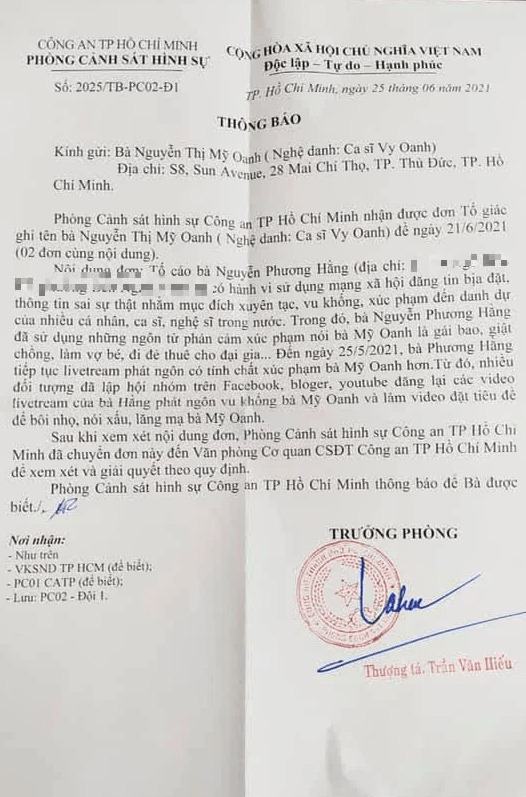 CÔNG AN TP HỒ CHÍ MINH
PHÒNG CẢNH SÁT HÌNH SỰ
Số: 2025/TB-PC02-Đ1
CỘNG HÒA XÃ HỘI CHỦ NGHĨA VIỆT NAM
Độc lập – Tự do – Hạnh phúc
TP. Hồ Chí Minh, ngày 25 tháng 06 năm 2021
THÔNG BÁO
Kính gửi: Bà Nguyễn Thị Mỹ Oanh ( Nghệ danh: Ca sĩ Vy Oanh)
Địa chỉ: S8, Sun Avenue, 28 Mai Chí Thọ, TP. Thủ Đức, TP. Hồ
Chí Minh.
Phòng Cảnh sát hình sự Công an TP Hồ Chí Minh nhận được đơn Tố giác
ghi tên bà Nguyễn Thị Mỹ Oanh ( Nghệ danh: Ca sĩ Vy Oanh) đề ngày 21/6/2021
(02 đơn cùng nội dung).
Nội dung đơn: Tố cáo bà Nguyễn Phương Hằng (địa chỉ:
có hành vi sử dụng mạng xã hội đăng tin bịa đặt,
thông tin sai sự thật nhằm mục đích xuyên tạc, vu khống, xúc phạm đến danh dự
của nhiều cá nhân, ca sĩ, nghệ sĩ trong nước. Trong đó, bà Nguyễn Phương Hằng
đã sử dụng những ngôn từ phản cảm xúc phạm nói bà Mỹ Oanh là gái bao, giật
chồng, làm vợ bé, đi đẻ thuê cho đại gia... Đến ngày 25/5/2021, bà Phương Hằng
tiếp tục livestream phát ngôn có tính chất xúc phạm bà Mỹ Oanh hơn.Từ đó, nhiều
đối tượng đã lập hội nhóm trên Facebook, bloger, youtube đăng lại các video
livetream của bà Hằng phát ngôn vu khống bà Mỹ Oanh và làm video đặt tiêu đề
để bôi nhọ, nói xấu, lăng mạ bà Mỹ Oanh.
Sau khi xem xét nội dung đơn, Phòng Cảnh sát hình sự Công an TP Hồ Chí
Minh đã chuyển đơn này đến Văn phòng Cơ quan CSĐT Công an TP Hồ Chí Minh
để xem xét và giải quyết theo quy định.
Phòng Cảnh sát hình sự Công an TP Hồ Chí Minh thông báo để Bà được
biết./.
Nơi nhận:
- Như trên
- VKSND TP HCM (để biết);
- PC01 CATP (để biết);
- Lưu: PC02 - Đội 1.
TRƯỞNG PHÒNG
Thượng tá. Trần Văn Hiếu